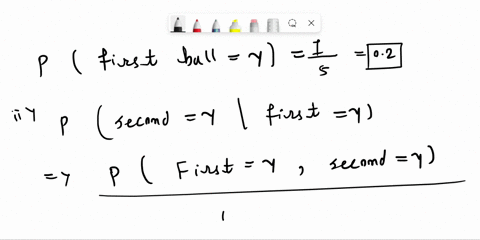 P ( first ball = Y ) = 1/5 = 0.2
ii) P ( second = Y | first = Y )
=> P ( First = Y , second = Y )